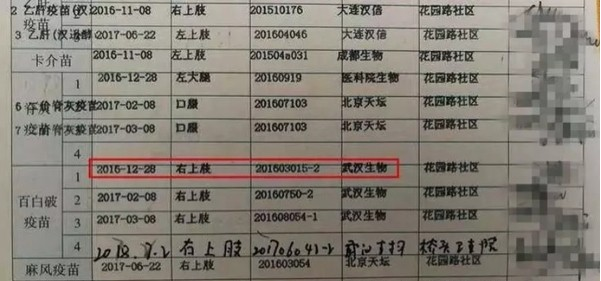 2 乙肝疫苗(汉 2016-11-08 右上肢 201510176 大连汉信 花园路社区
疫苗 2
3 乙肝(汉逊酵 2017-06-22 左上肢 201604046 大连汉信 花园路社区
卡介苗 2016-11-08 左上肢 201504a031 成都生物 花园路社区
1 2016-12-28 左大腿 20160919 医科院生物 花园路社区
2017-02-08 口服 201607103 北京天坛 花园路社区
2017-03-08 口服 201607103 北京天坛 花园路社区
4
1 2016-12-28 右上肢 201603015-2 武汉生物 花园路社区
百白破
疫苗
2 2017-02-08 右上肢 20160750-2 武汉生物 花园路社区
3 2017-03-08 右上肢 201608054-1 武汉生物 花园路社区
4 2018.7.2 右上肢 201706041-2
麻风疫苗 2017-06-22 右上肢 201603054 北京天坛 花园路社区